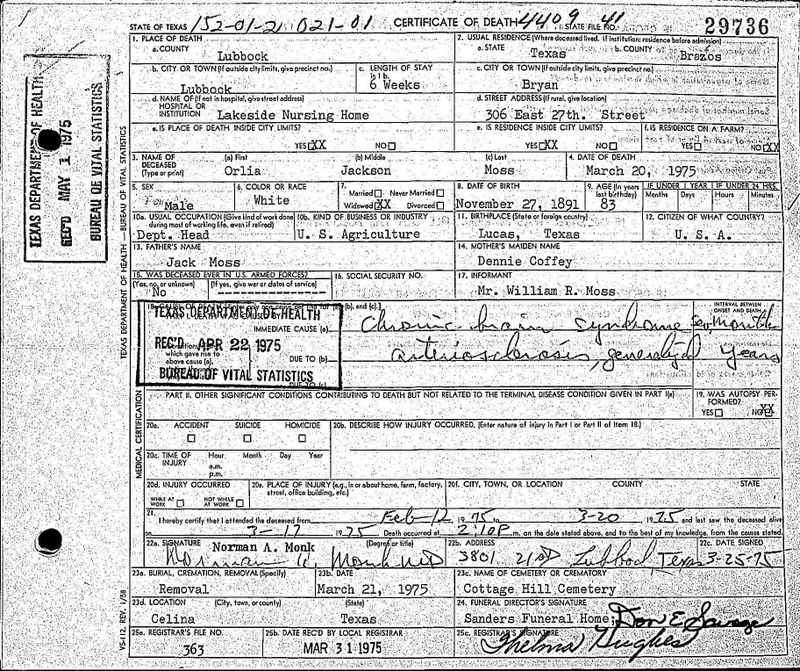 STATE OF TEXAS 152-01-21 021-01 CERTIFICATE OF DEATH 4409 STATE FILE NO. 41 29736
1. PLACE OF DEATH
a. COUNTY Lubbock
2. USUAL RESIDENCE (Where deceased lived. If institution: residence before admission)
a. STATE Texas b. COUNTY Brazos
b. CITY OR TOWN (If outside city limits, give precinct no.) Lubbock
c. LENGTH OF STAY 6 Weeks
c. CITY OR TOWN (If outside city limits, give precinct no.) Bryan
d. NAME OF (If not in hospital, give street address) HOSPITAL OR INSTITUTION Lakeside Nursing Home
d. STREET ADDRESS (If rural, give location) 306 East 27th. Street
e. IS PLACE OF DEATH INSIDE CITY LIMITS? YES XX NO
e. IS RESIDENCE INSIDE CITY LIMITS? YES XX NO
f. IS RESIDENCE ON A FARM? YES NO XX
3. NAME OF DECEASED (Type or print) (a) First Orlia (b) Middle Jackson (c) Last Moss
4. DATE OF DEATH March 20, 1975
5. SEX Male
6. COLOR OR RACE White
7. Married Never Married Widowed XX Divorced
8. DATE OF BIRTH November 27, 1891
9. AGE (In years last birthday) 83
IF UNDER 1 YEAR Months Days
IF UNDER 24 HRS. Hours Minutes
10a. USUAL OCCUPATION (Give kind of work done during most of working life, even if retired) Dept. Head
10b. KIND OF BUSINESS OR INDUSTRY U. S. Agriculture
11. BIRTHPLACE (State or foreign country) Lucas, Texas
12. CITIZEN OF WHAT COUNTRY? U. S. A.
13. FATHER'S NAME Jack Moss
14. MOTHER'S MAIDEN NAME Dennie Coffey
15. WAS DECEASED EVER IN U.S. ARMED FORCES? (Yes, no, or unknown) No (If yes, give war or dates of service)
16. SOCIAL SECURITY NO.
17. INFORMANT Mr. William R. Moss
INTERVAL BETWEEN ONSET AND DEATH
IMMEDIATE CAUSE (a) Chronic brain syndrome Sev month
which gave rise to above cause (a), DUE TO (b) arteriosclerosis, generalized Years
TEXAS DEPARTMENT OF HEALTH
REC'D APR 22 1975
BUREAU OF VITAL STATISTICS
PART II. OTHER SIGNIFICANT CONDITIONS CONTRIBUTING TO DEATH BUT NOT RELATED TO THE TERMINAL DISEASE CONDITION GIVEN IN PART I(a)
19. WAS AUTOPSY PERFORMED? YES NO XX
20a. ACCIDENT SUICIDE HOMICIDE
20b. DESCRIBE HOW INJURY OCCURRED. (Enter nature of injury in Part I or Part II of Item 18.)
20c. TIME OF INJURY Hour a.m. p.m. Month Day Year
20d. INJURY OCCURRED WHILE AT WORK NOT WHILE AT WORK
20e. PLACE OF INJURY (e.g., in or about home, farm, factory, street, office building, etc.)
20f. CITY, TOWN, OR LOCATION COUNTY STATE
21. I hereby certify that I attended the deceased from Feb-12 1975 3-20 1975 and last saw the deceased alive
3-17 1975 Death occurred at 2:10P m. on the date stated above, and to the best of my knowledge, from the causes stated
22a. SIGNATURE Norman A. Monk (Degree or title) Norman A. Monk MD
22b. ADDRESS 3801 21st Lubbock Texas
22c. DATE SIGNED 3-25-75
23a. BURIAL, CREMATION, REMOVAL (Specify) Removal
23b. DATE March 21, 1975
23c. NAME OF CEMETERY OR CREMATORY Cottage Hill Cemetery
23d. LOCATION (City, town, or county) Celina (State) Texas
24. FUNERAL DIRECTOR'S SIGNATURE Sanders Funeral Home; Don E Savage
25a. REGISTRAR'S FILE NO. 363
25b. DATE REC'D BY LOCAL REGISTRAR MAR 31 1975
25c. REGISTRAR'S SIGNATURE Thelma Hughes
TEXAS DEPARTMENT OF HEALTH
REC'D MAY 1 1975
BUREAU OF VITAL STATISTICS
TEXAS DEPARTMENT OF HEALTH—BUREAU OF VITAL STATISTICS
MEDICAL CERTIFICATION
VS-112, REV. 1/58